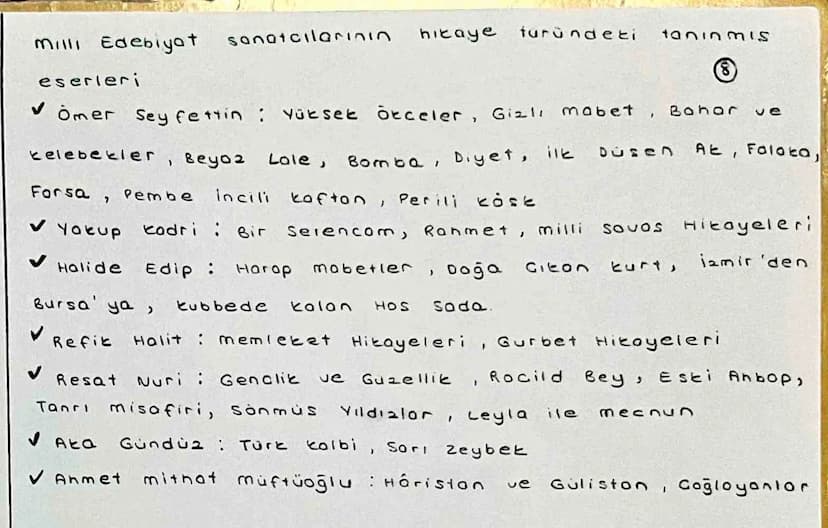 Milli Edebiyat sanatcılarının hikaye türündeki tanınmıs
eserleri
8
✓ Ömer Seyfettin : Yüksek Ökceler, Gizli mabet, Bahar ve
Kelebekler, Beyaz Lale, Bomba, Diyet, ilk Düsen Ak, Falaka,
Forsa, Pembe incili kaftan, Perili Kösk
✓ Yakup Kadri : Bir Serencam, Rahmet, milli savas Hikayeleri
✓ Halide Edip : Harap mabetler, Doğa Cıkan kurt, izmir'den
Bursa'ya, kubbede kalan Hos Sada.
✓ Refik Halit : memleket Hikayeleri, Gurbet Hikayeleri
✓ Resat Nuri : Genclik ve Güzellik, Rocild Bey, Eski Ahbap,
Tanrı misafiri, Sönmüs Yıldızlar, Leyla ile mecnun
✓ Aka Gündüz : Türk kalbi, Sarı Zeybek
✓ Ahmet mithat müftüoğlu : Hâristan ve Gülistan, Cağlayanlar